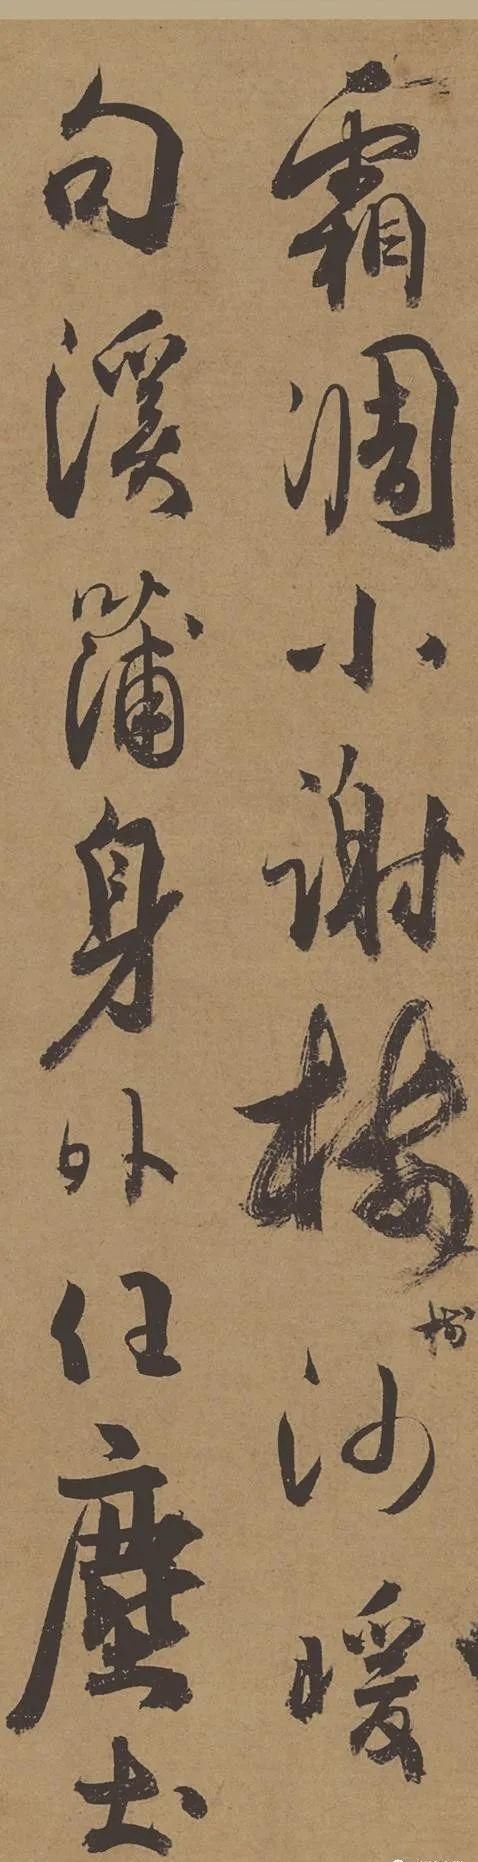 霜凋小謝樓樹沙暖
句溪蒲身外任塵土